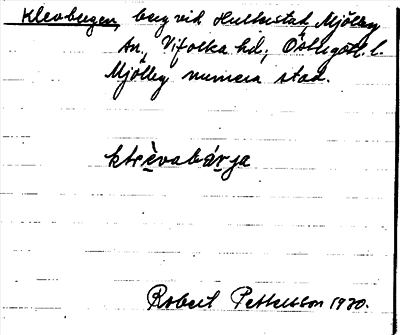 Klevbergen, berg vid Hulterstad, Mjölby
sn, Vifolka hd, Östergötl. l.
Mjölby numera stad.
klèvabárja
Robert Pettersson 1930.